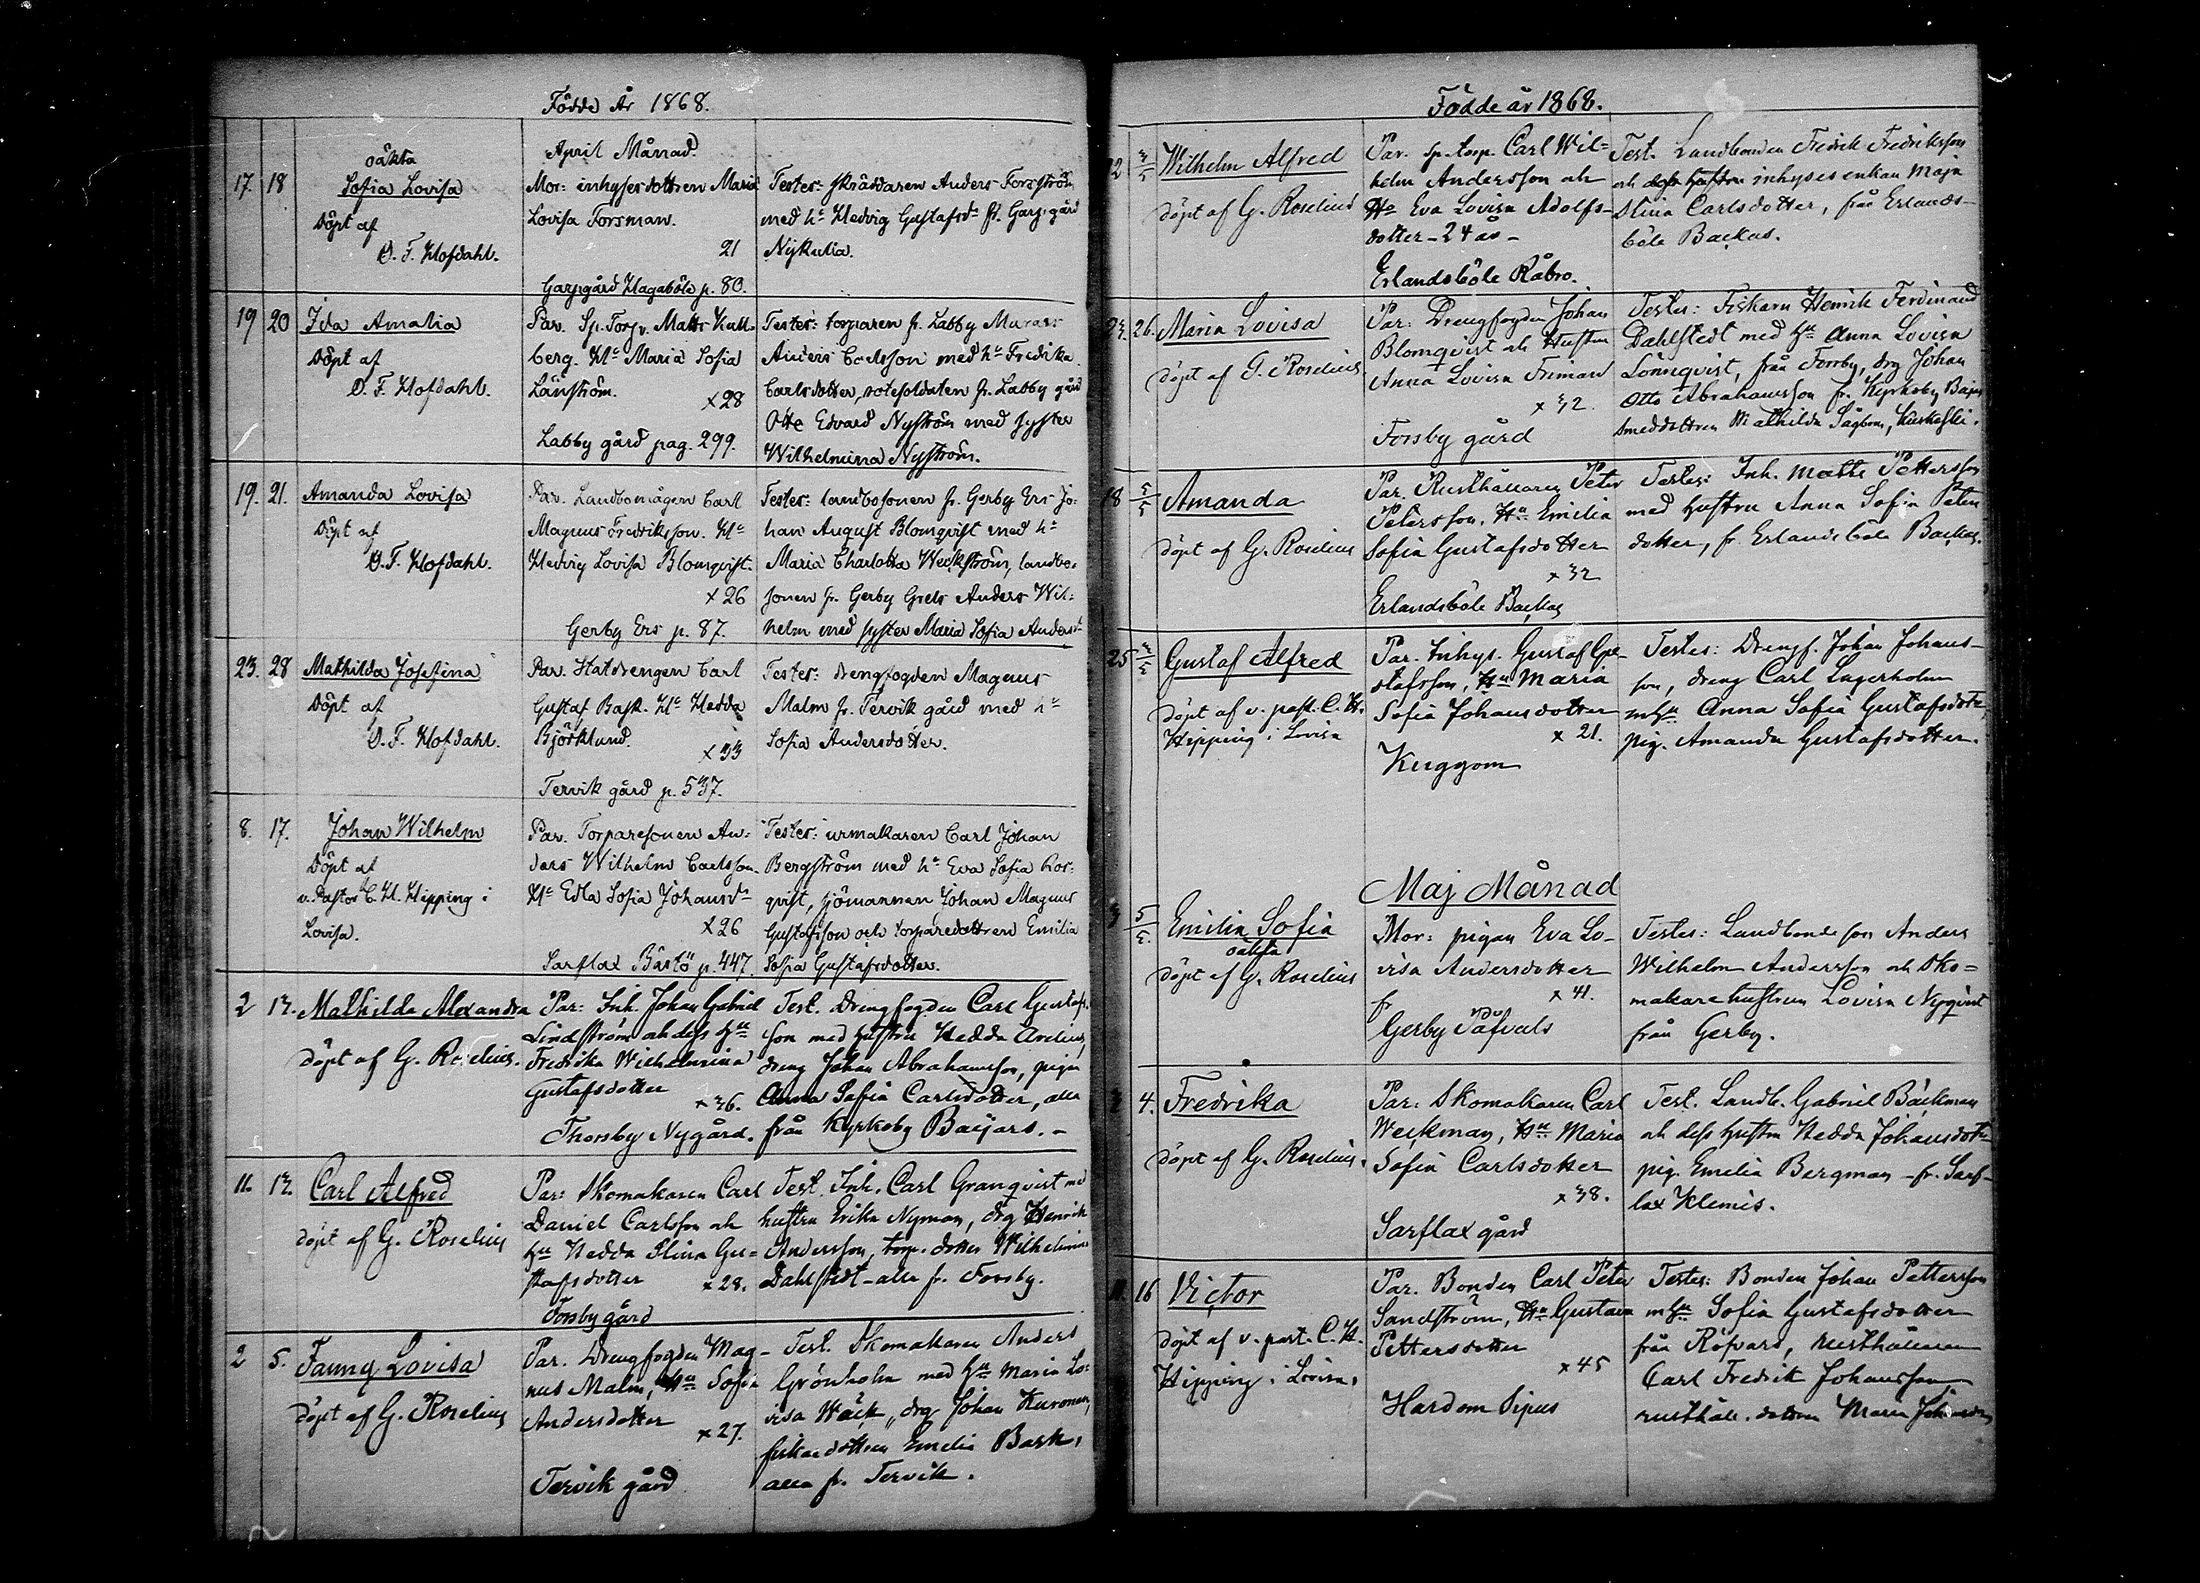 Födde År 1868.
April Månad.
17. 18
oäkta
Sofia Lovisa
Döpt af
O. F. Hofdahl.
Mor: inhysesdottren Maria
Lovisa Forsman.
21
Garpgård Hagaböle p. 80.
Testes: skräddaren Anders Forsström
med h:u Hedvig Gustafsd:r fr. Garpgård
Nykulla.
19 20
Ida Amalia
Döpt af
O. F. Hofdahl.
Par. Sp. Torp. Matts Kull-
berg. H:u Maria Sofia
Länström.
x 28
Labby gård pag. 299.
Testes: torparen fr. Labby Murars
Anders Carlsson med h:u Fredrika
Carlsdotter, rotesoldaten fr. Labby gård
Otto Edvard Nyström med syster
Wilhelmina Nyström.
19. 21.
Amanda Lovisa
Döpt af
O. F. Hofdahl.
Par. Landbomågen Carl
Magnus Fredriksson. H:u
Hedvig Lovisa Blomqvist.
x 26
Gerby Ers p. 87.
Testes: landbosonen fr. Gerby Ers Jo-
han August Blomqvist med h:u
Maria Charlotta Weckström, landbo-
sonen fr. Gerby Grels Anders Wil-
helm med syster Maria Sofia Andersd:r
23. 28
Mathilda Josefina
Döpt af
O. F. Hofdahl.
Par. Statdrengen Carl
Gustaf Bask. H:u Hedda
Björklund.
x 33
Tervik gård p. 537.
Testes: drengfogden Magnus
Malm fr. Tervik gård med h:u
Sofia Andersdotter.
8. 17.
Johan Wilhelm
Döpt af
v. Pastor C. H. Hipping i
Lovisa.
Par. Torparesonen An-
ders Wilhelm Carlsson.
H:u Edla Sofia Johansd:r
x 26
Sarflax Bastö p. 447.
Testes: urmakaren Carl Johan
Bergström med h:u Eva Sofia Nor-
qvist, sjömannen Johan Magnus
Gustafsson och torparedottren Emilia
Sofia Gustafsdotter.
2 13.
Mathilda Alexandra
döpt af G. Roselius.
Par: Inh. Johan Gabriel
Lindström och dess h:u
Fredrika Wilhelmina
Gustafsdotter
x 36.
Thorsby Nygård.
Test. Drengfogden Carl Gustafs-
son med hustru Hedda
dreng Johan Abrahamsson, pigan
Anna Sofia Carlsdotter, alla
från Kyrkoby Baijars. -
11. 13.
Carl Alfred
döpt af G. Roselius
Par: Skomakaren Carl
Daniel Carlsson och
h:u Hedda Stina Gu-
stafsdotter
x 28.
Forsby gård
Test. Inh. Carl Granqvist med
hustru Erika Nyman, drg Henrik
Andersson, torp. dotter Wilhelmina
Dahlstedt - alla fr. Forsby.
2 5.
Fanny Lovisa
döpt af G. Roselius
Par. Drengfogden Mag-
nus Malm, H:u Sofia
Andersdotter
x 27.
Tervik gård
Test. Skomakaren Anders
Grönholm med h:u Maria Lo-
visa Wäck, drg Johan Kuronen,
fiskaredottren Emelie Bask,
alla fr. Tervik.
Födde år 1868.
22 3/5
Wilhelm Alfred
döpt af G. Roselius
Par. Sp. torp. Carl Wil-
helm Andersson och
H:u Eva Lovisa Adolfs-
dotter - 24 år -
Erlandsböle Råbro.
Test. Landbonden Fredrik Fredriksson
och dess hustru inhyses enkan Maja
Stina Carlsdotter, från Erlands-
böle Backas.
23. 26.
Maria Lovisa
döpt af G. Roselius
Par: Drengfogden Johan
Blomqvist och Hustru
Anna Lovisa Friman
x 32.
Forsby gård
Testes: Fiskarn Henrik Ferdinand
Dahlstedt med h:u Anna Lovisa
Lönnqvist, från Forsby, drg Johan
Otto Abrahamsson fr. Kyrkoby Baijars
Smeddottren Mathilda Sågbom,
18 5/5
Amanda
döpt af G. Roselius
Par. Rusthållaren Peter
Petersson. H:u Emilia
Sofia Gustafsdotter
x 32
Erlandsböle Backas
Testes: Inh. Matts Pettersson
med hustru Anna Sofia Peters
dotter, fr. Erlandsböle Backas.
25 3/5
Gustaf Alfred
döpt af v. past. C. H.
Hipping i Lovisa
Par. Inhys. Gustaf Gu-
stafsson, H:u Maria
Sofia Johansdotter
x 21.
Kuggom
Testes: Drengf. Johan Johans-
son, dreng Carl Lagerholm
m h:u Anna Sofia Gustafsdotter,
pig. Amanda Gustafsdotter.
Maj Månad
3 5/5.
Emilia Sofia
oäkta
döpt af G. Roselius
Mor: pigan Eva Lo-
visa Andersdotter
x 41.
fr
Gerby Päfvals
Testes: Landbonde son Anders
Wilhelm Andersson och Sko-
makare hustrun Lovisa Nyqvist
från Gerby.
2 4.
Fredrika
döpt af G. Roselius.
Par: Skomakaren Carl
Weckman, H:u Maria
Sofia Carlsdotter
x 38.
Sarflax gård
Test. Landb. Gabriel Bäckman
och dess hustru Hedda Johansdotter
pig. Emelia Bergman - fr. Sarf-
lax Klemis.
11. 16
Victor
döpt af v. past. C. H.
Hipping i Lovisa.
Par. Bonden Carl Peter
Sandström, H:u Gustava
Pettersdotter
x 45
Hardom Sipus
Testes: Bonden Johan Pettersson
m h:u Sofia Gustafsdotter
från Röfvars, rusthållaren
Carl Fredrik Johansson
rusthåll. dottren Maria Johansdr